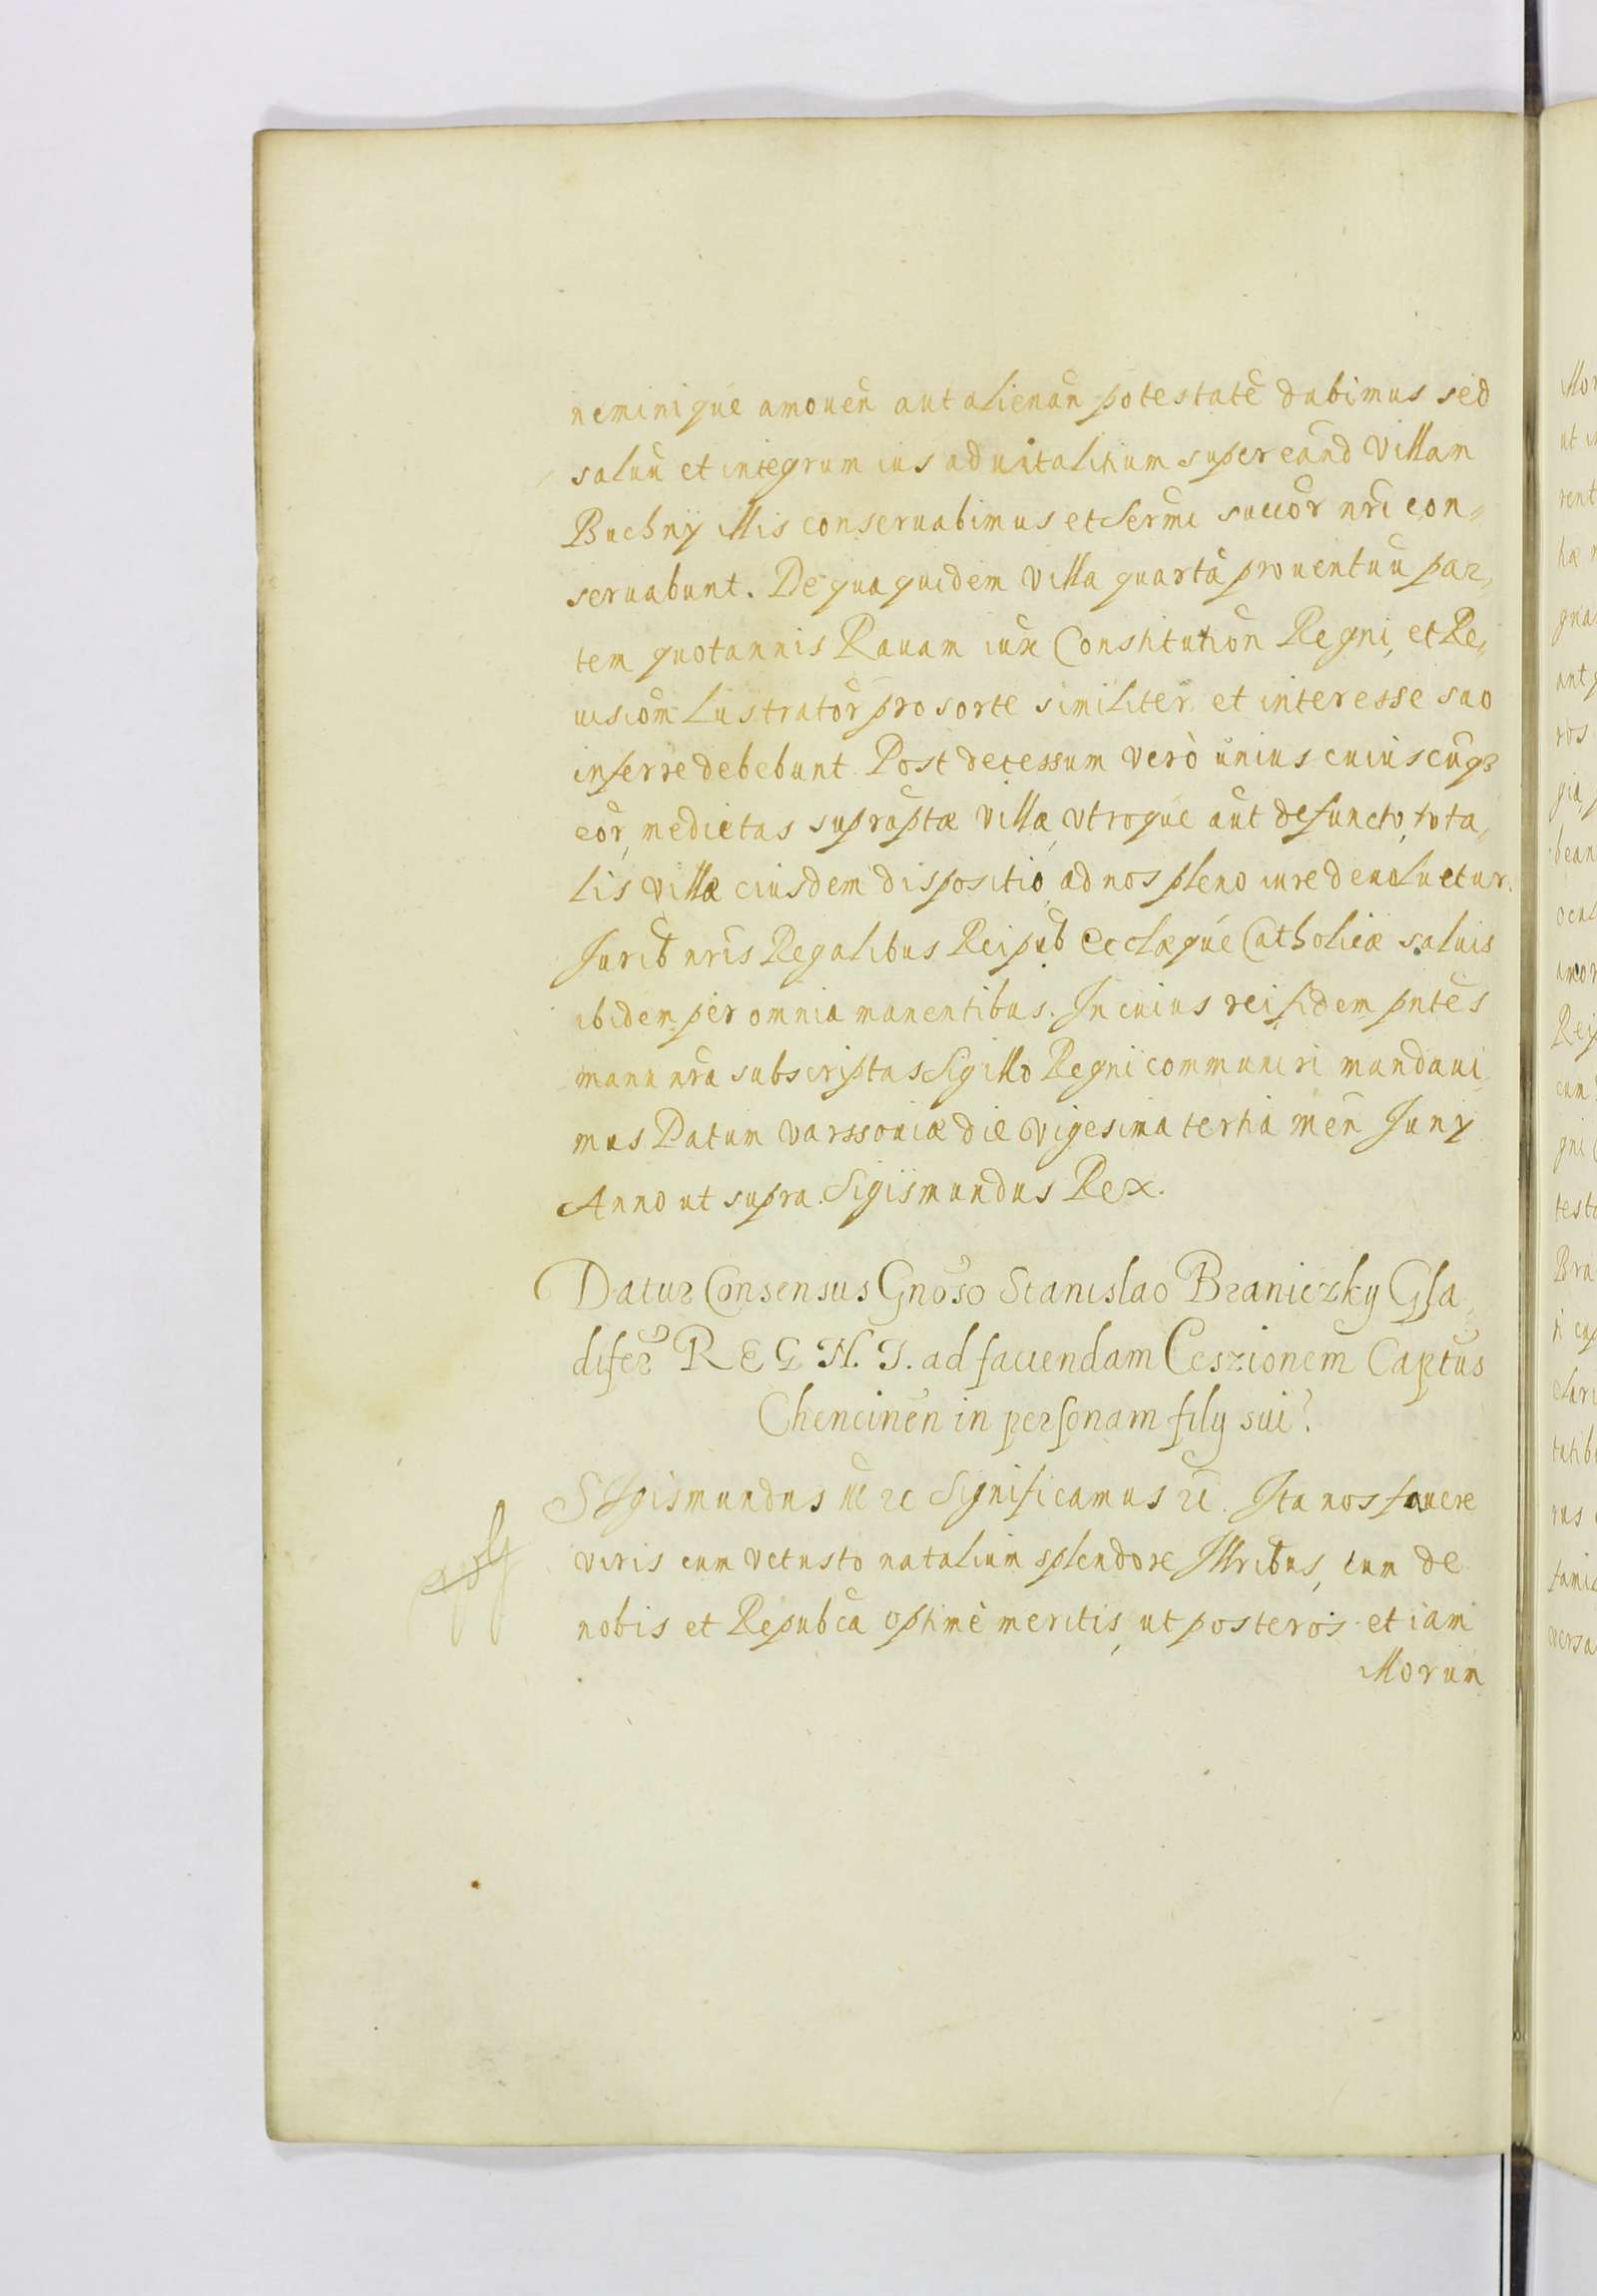 neminiqué amoueñ aut alienañ potestatē dabimus sed
saluū et integrum ius aduitalitium super eañd Villam
Buchny illis conseruabimus et Sermi succor nri con-
seruabunt. De qua quidem Villa quartā prouentuū par-
tem quotannis Rauam iuxᵃ Constitution Regni, et Re-
uision Lustrator pro sorte similiter et interesse suo
inferre debebunt. Post decessum verò unius cuiuscunq3
eor, medietas supraptæ Villæ, vtroque aut defuncto, tota-
lis Villæ eiusdem dispositio, ad nos pleno iure deuoluetur.
Jurib nris Regalibus Reipub Ecclæqué Catholicæ saluis
ibidem per omnia manentibus. In cuius rei fidem pntes
manu nra subscriptas Sigillo Regni communiri mandaui-
mus Datum Varssouiæ die vigesima tertia men Juny
Anno ut supra. Sigismundus Rex.
Datur Consensus Gnoso Stanislao Braniczky Gla-
difer R E G N. I. ad faciendam Ceszionem Captus
Chencinen in personam fily sui.
SIgismundus etc etc Significamus etc. Ita nos fauere
viris cum vetusto natalium splendore Illribus, tum de
nobis et Repubca optimè meritis, ut posteros etiam
illorum